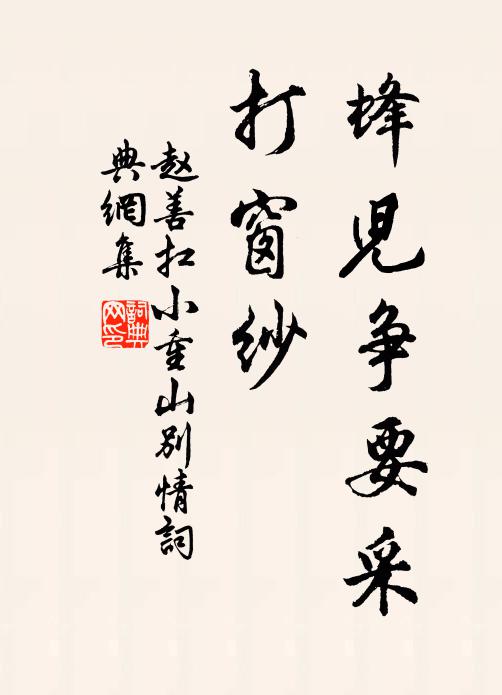 蜂児争要采
打窗纱
赵善扛小重山别情词
典網集
詞典
网印